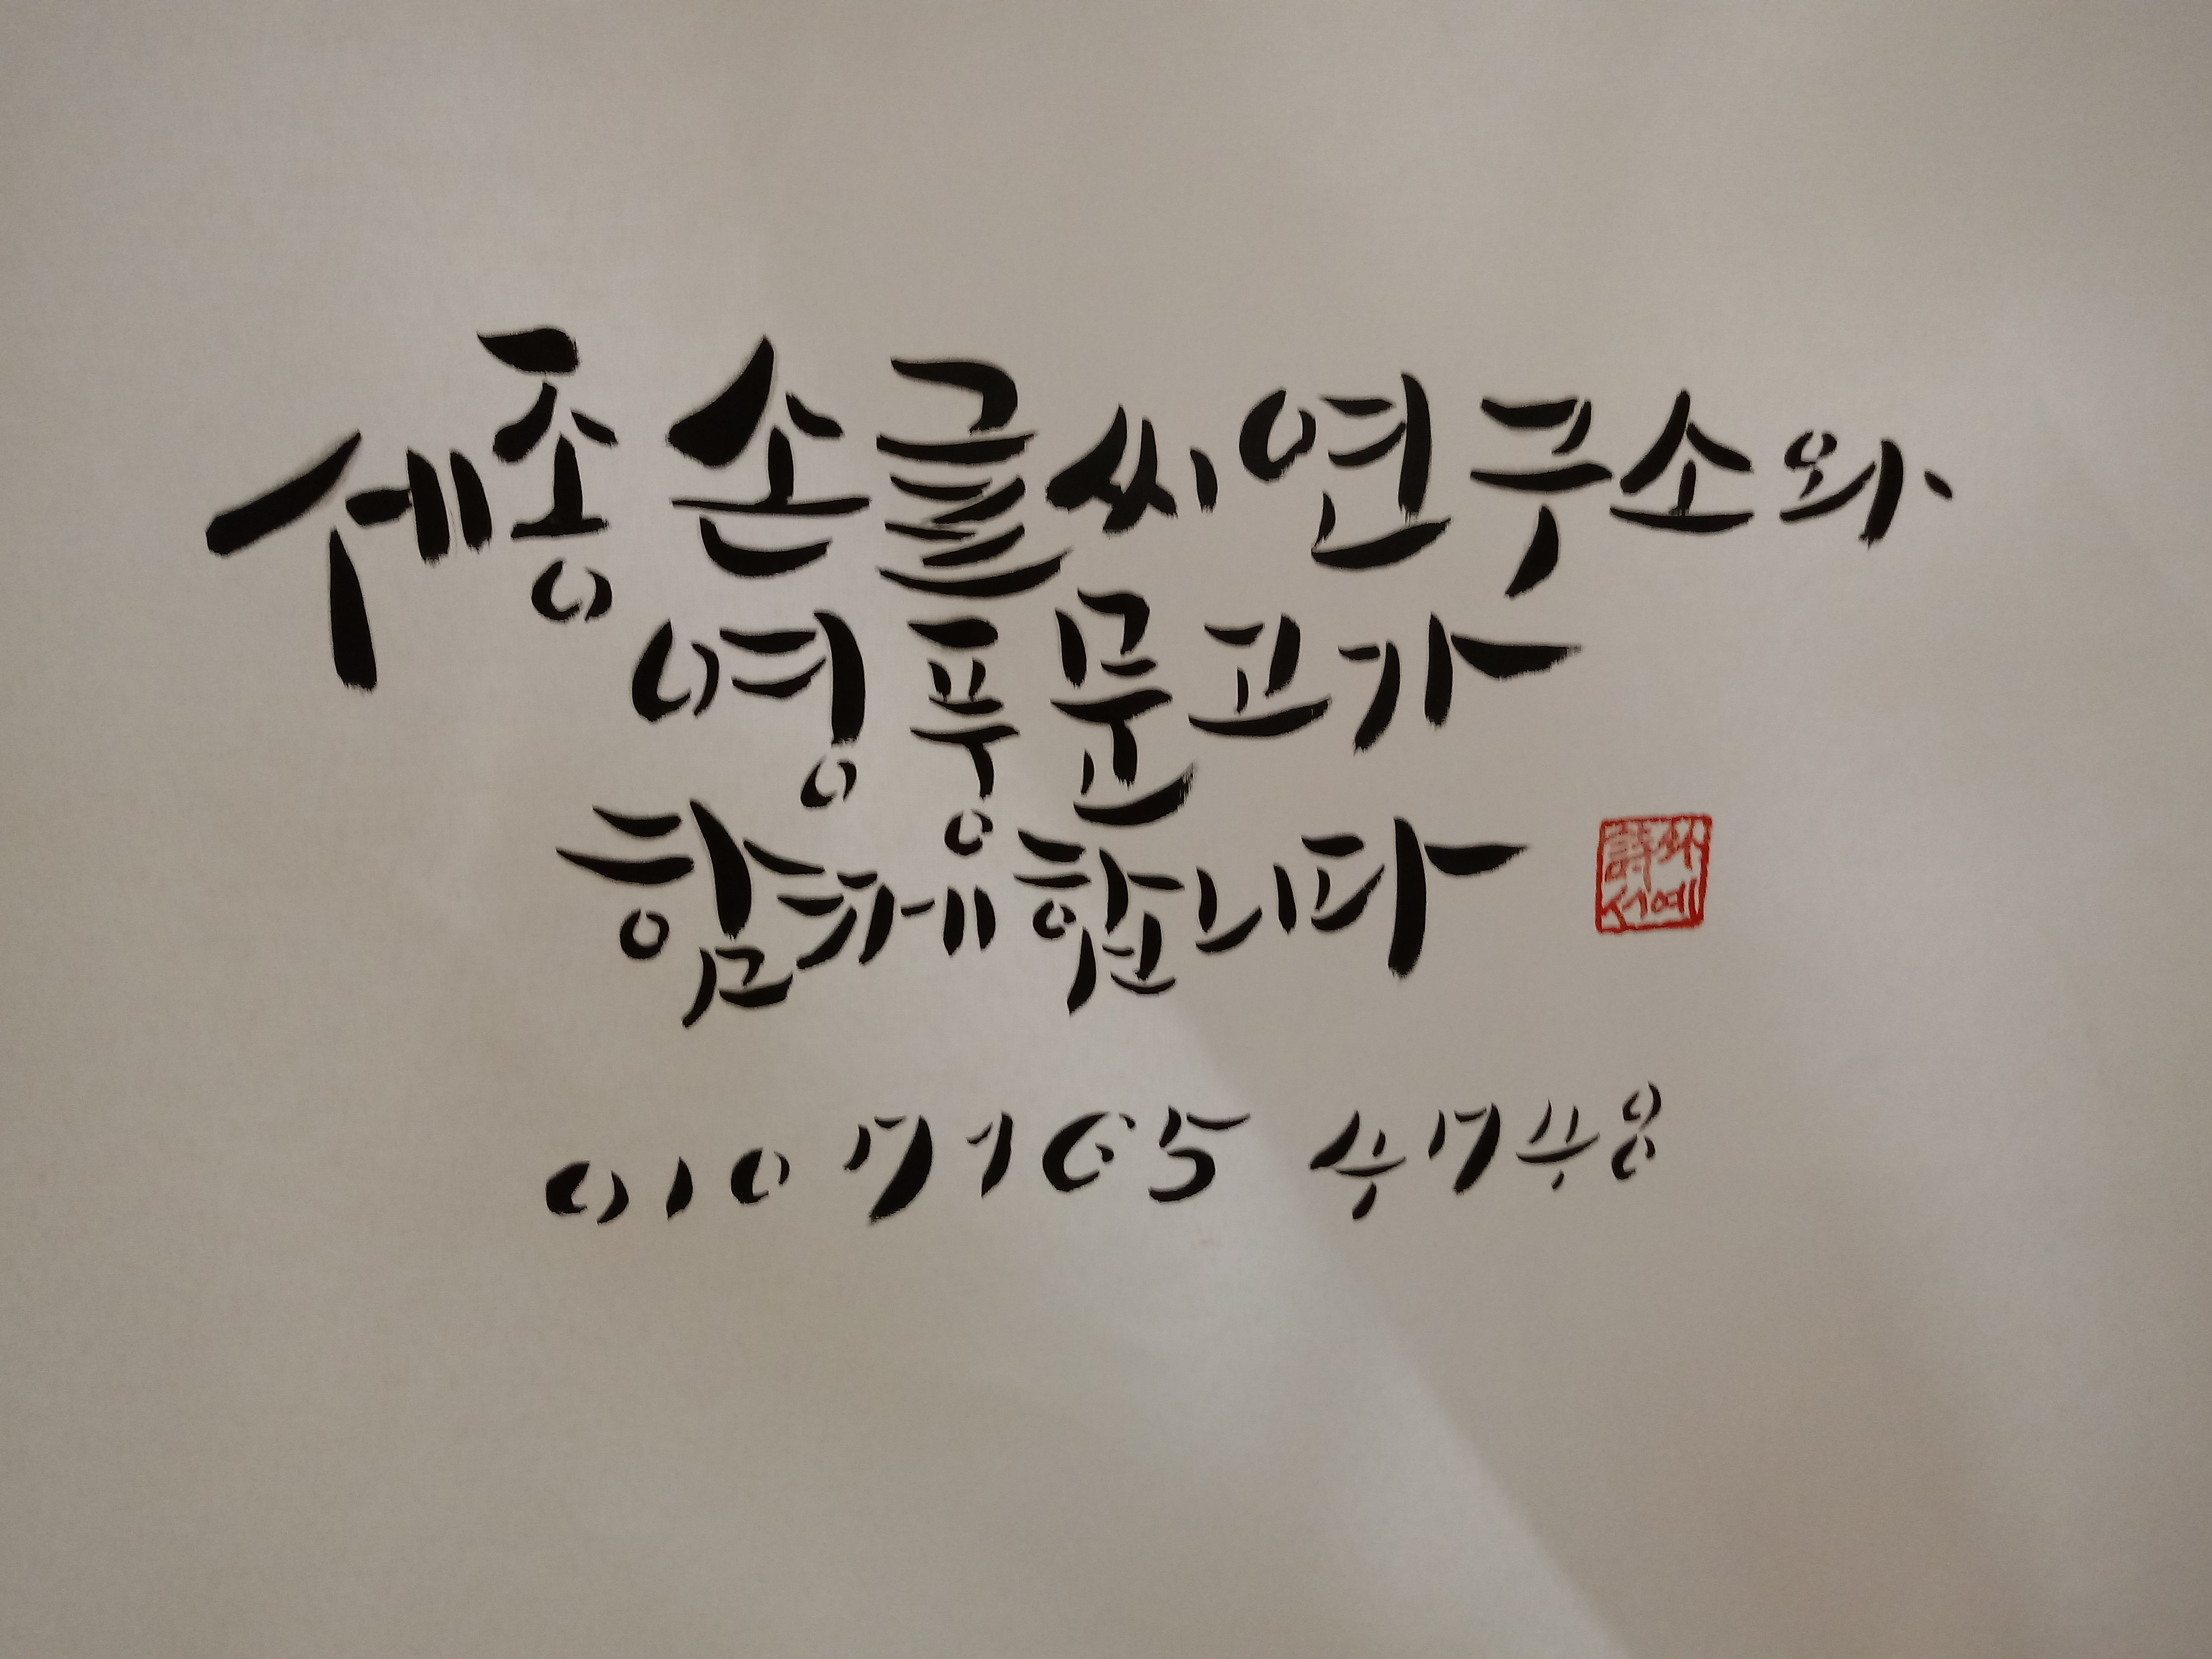 세종손글씨연구소와
영풍문고가
함께합니다
詩와
서예
010 7165 4748